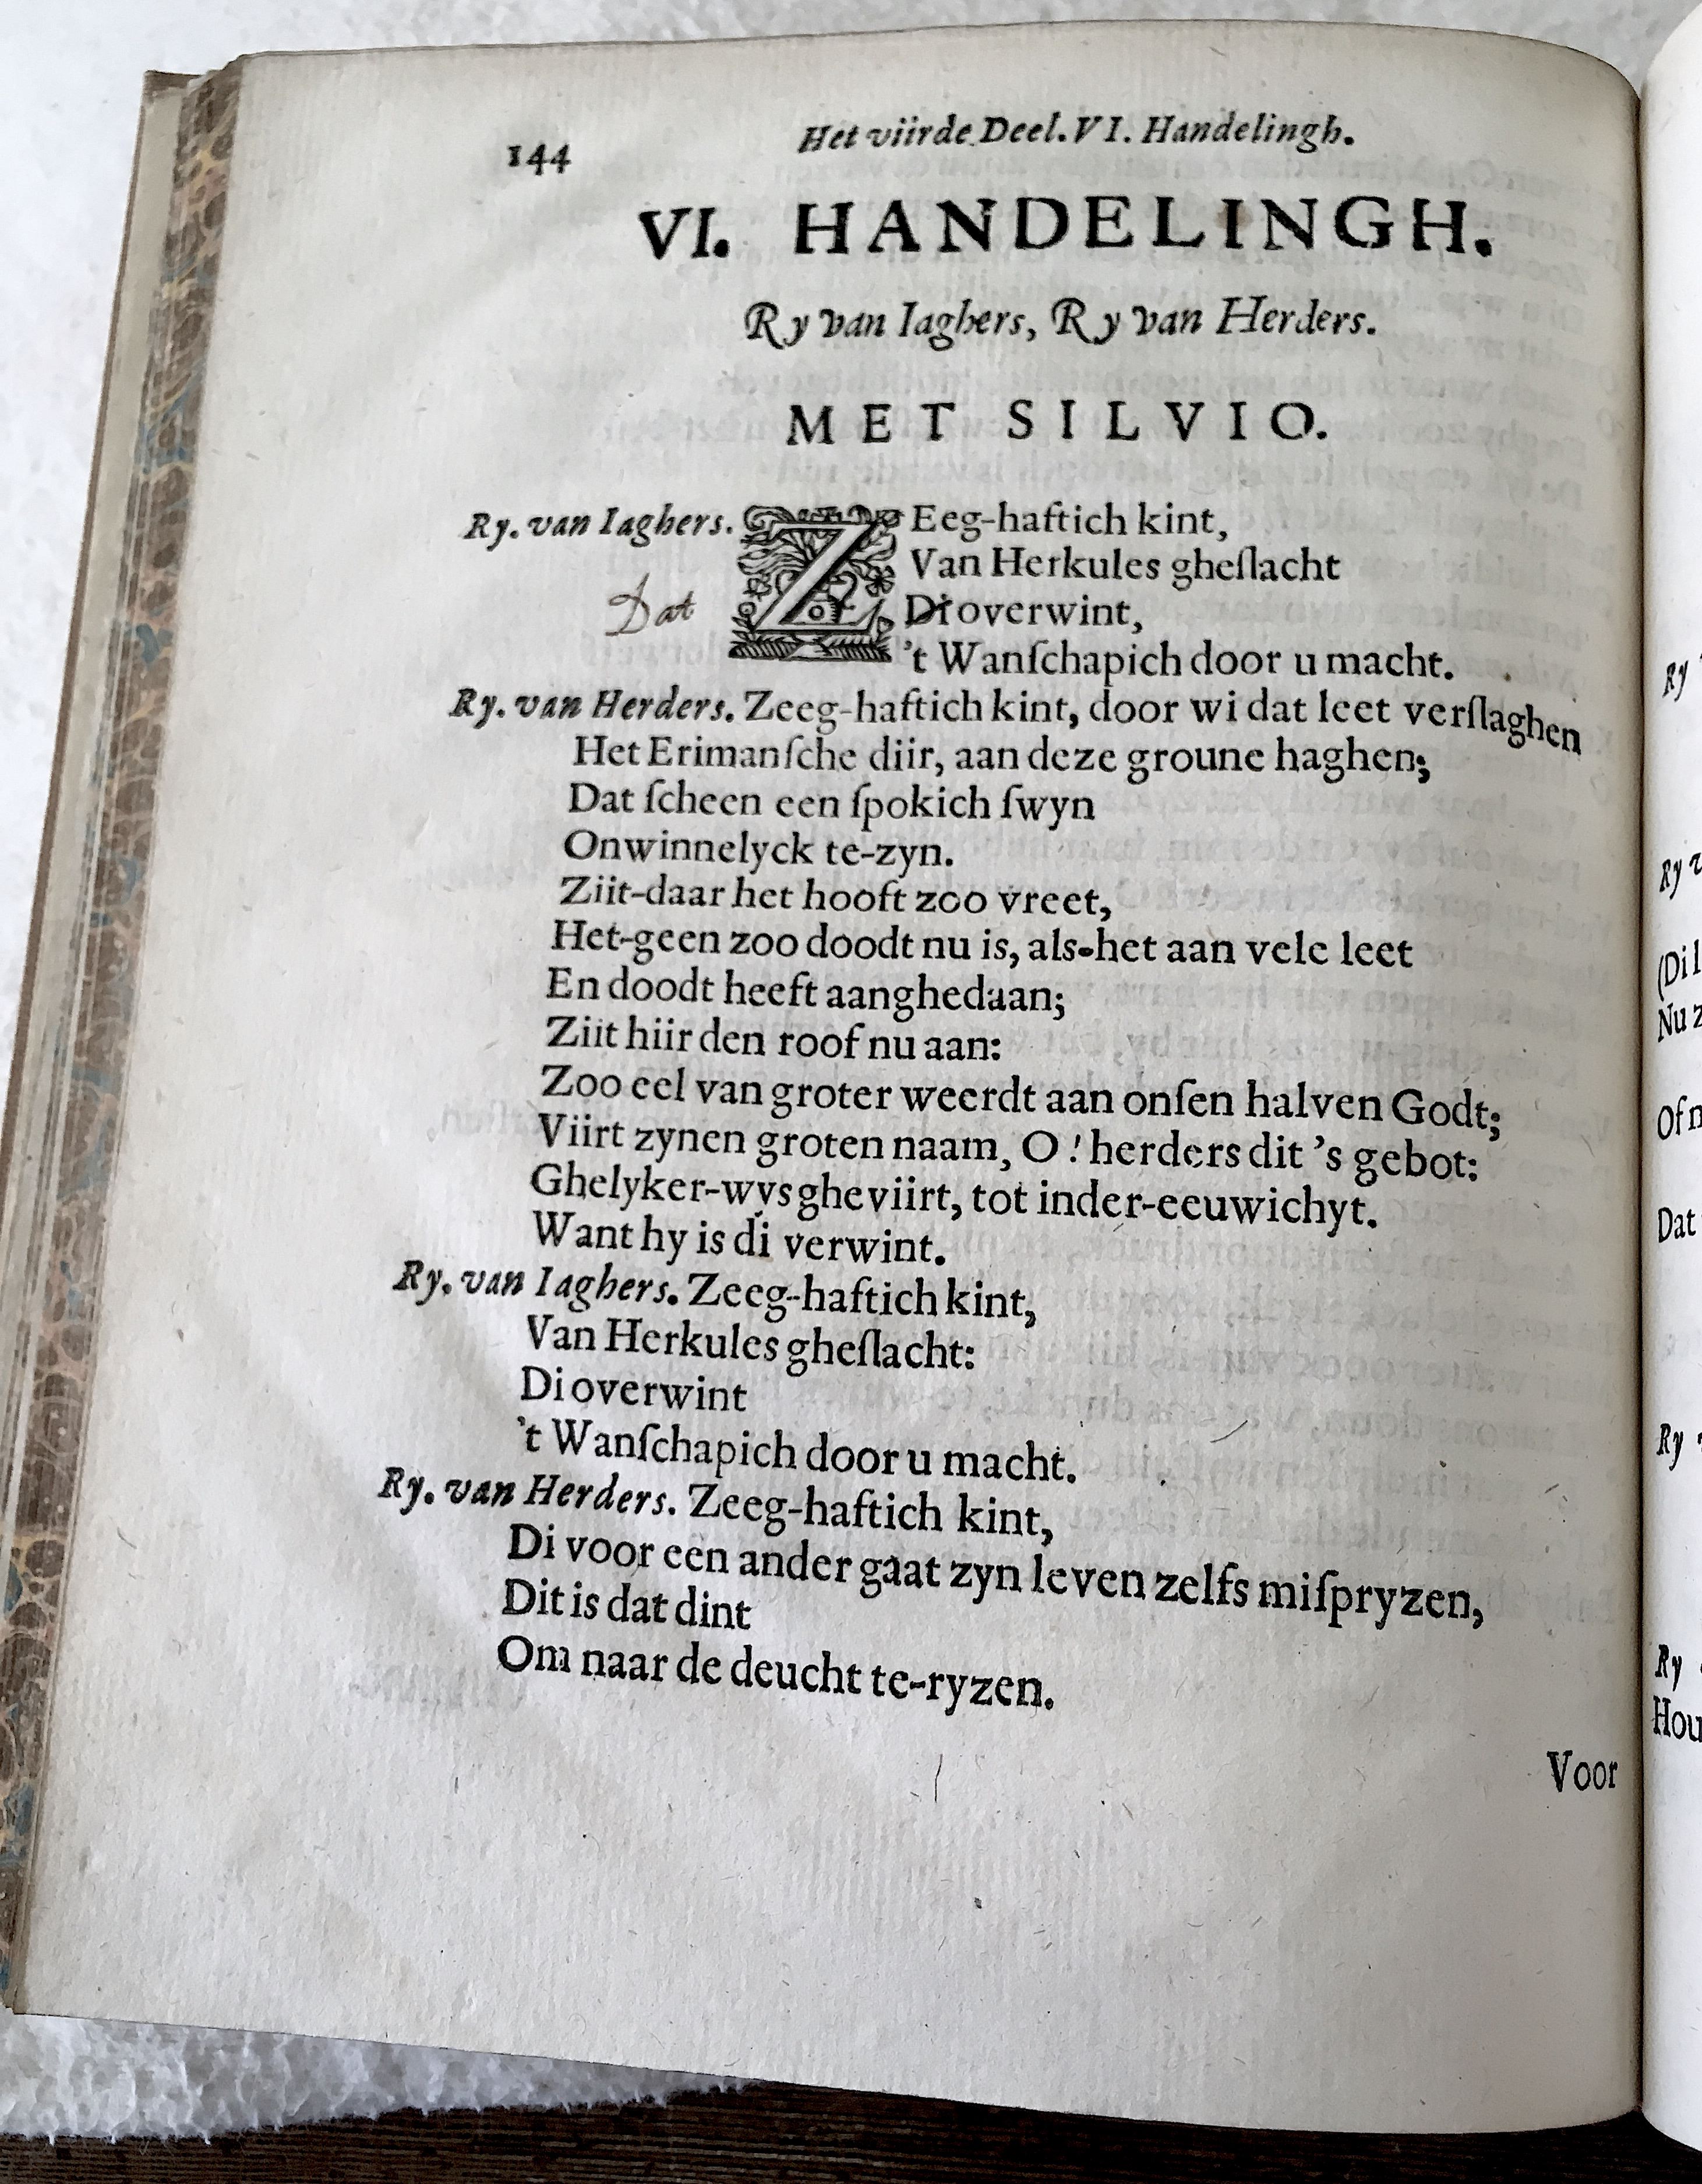 144
Het viirde Deel. VI. Handelingh.
VI. HANDELINGH.
Ry van Iaghers, Ry van Herders.
MET SILVIO.
Ry. van Iaghers. ZEeg-haftich kint,
Van Herkules gheſlacht
Dat
Di overwint,
't Wanſchapich door u macht.
Ry. van Herders. Zeeg-haftich kint, door wi dat leet verſlaghen
Het Erimanſche diir, aan deze groune haghen;
Dat ſcheen een ſpokich ſwyn
Onwinnelyck te-zyn.
Ziit-daar het hooft zoo vreet,
Het-geen zoo doodt nu is, als-het aan vele leet
En doodt heeft aanghedaan;
Ziit hiir den roof nu aan:
Zoo eel van groter weerdt aan onſen halven Godt;
Viirt zynen groten naam, O! herders dit 's gebot:
Ghelyker-wys gheviirt, tot inder-eeuwichyt.
Want hy is di verwint.
Ry. van Iaghers. Zeeg-haftich kint,
Van Herkules gheſlacht:
Di overwint
't Wanſchapich door u macht.
Ry. van Herders. Zeeg-haftich kint,
Di voor een ander gaat zyn leven zelfs miſpryzen,
Dit is dat dint
Om naar de deucht te-ryzen.
Voor
Ry
Ry v
(Di l
Nu z
Of n
Dat
Ry
Ry
Hou